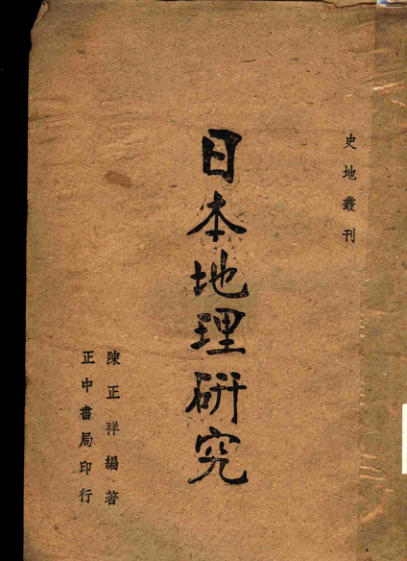 史地叢刊
日本地理研究
陳正祥編著
正中書局印行